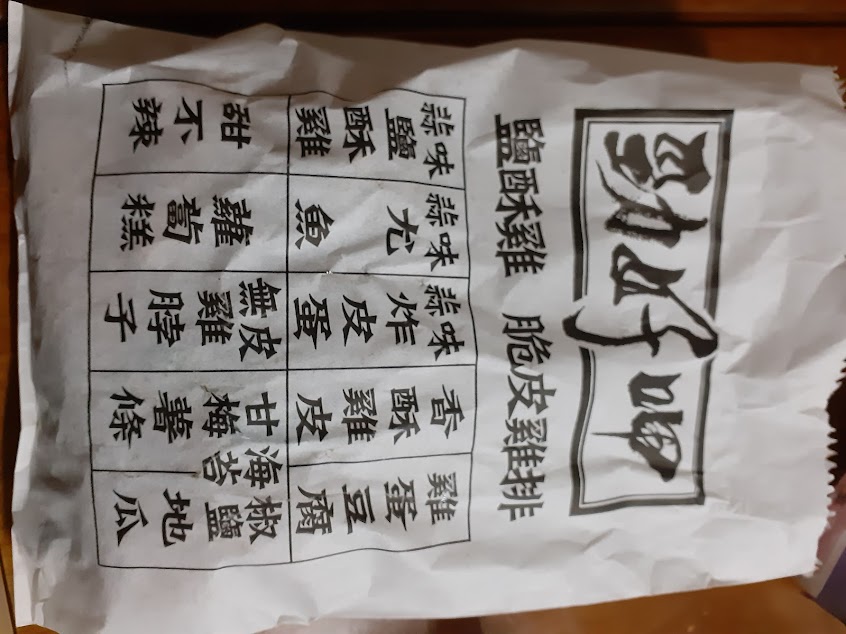 勁好呷
鹽酥雞 脆皮雞排
蒜味鹽酥雞
蒜味尤魚
蒜味炸皮蛋
香酥雞皮
雞蛋豆腐
甜不辣
蘿蔔糕
無皮雞脖子
甘梅薯條
海苔椒鹽地瓜